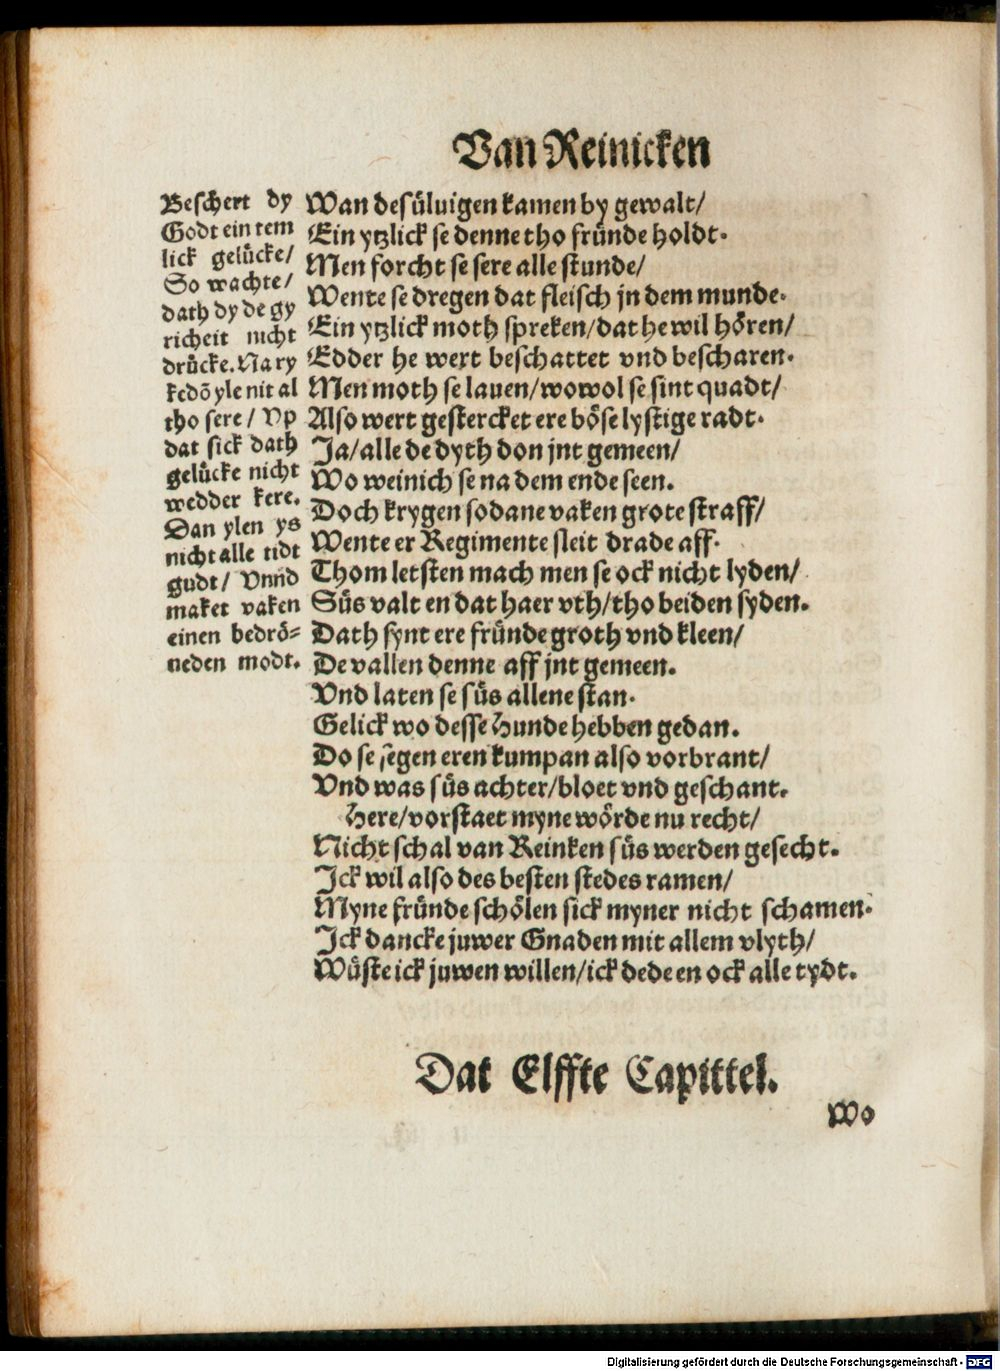 Van Reinicken
Beschert dy
Godt ein tem
lick gelücke/
So wachte/
dath dy de gy
richeit nicht
drücke. Na ry
kedō yle nit al
tho sere/ Vp
dat sick dath
gelücke nicht
wedder kere.
Dan ylen ys
nicht alle tidt
gudt/ Vnnd
maket vaken
einen bedrö⸗
neden modt.
Wan desüluigen kamen by gewalt/
Ein ytzlick se denne tho fründe holdt.
Men forcht se sere alle stunde/
Wente se dregen dat fleisch jn dem munde.
Ein ytzlick moth spreken/dat he wil hören/
Edder he wert beschattet vnd bescharen.
Men moth se lauen/wowol se sint quadt/
Also wert gestercket ere böse lystige radt.
Ja/alle de dyth don jnt gemeen/
Wo weinich se na dem ende seen.
Doch krygen sodane vaken grote straff/
Wente er Regimente sleit drade aff.
Thom letsten mach men se ock nicht lyden/
Süs valt en dat haer vth/tho beiden syden.
Dath synt ere fründe groth vnd kleen/
De vallen denne aff jnt gemeen.
Vnd laten se süs allene stan.
Gelick wo desse Hunde hebben gedan.
Do se segen eren kumpan also vorbrant/
Vnd was süs achter/bloet vnd geschant.
Here/vorstaet myne wörde nu recht/
Nicht schal van Reinken süs werden gesecht.
Ick wil also des besten stedes ramen/
Myne fründe schölen sick myner nicht schamen.
Ick dancke juwer Gnaden mit allem vlyth/
Wüste ick juwen willen/ick dede en ock alle tydt.
Dat Elffte Capittel.
Wo
Digitalisierung gefördert durch die Deutsche Forschungsgemeinschaft - DFG